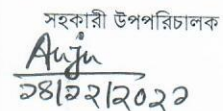 সহকারী উপপরিচালক
Anju
১৪/১২/২০২২